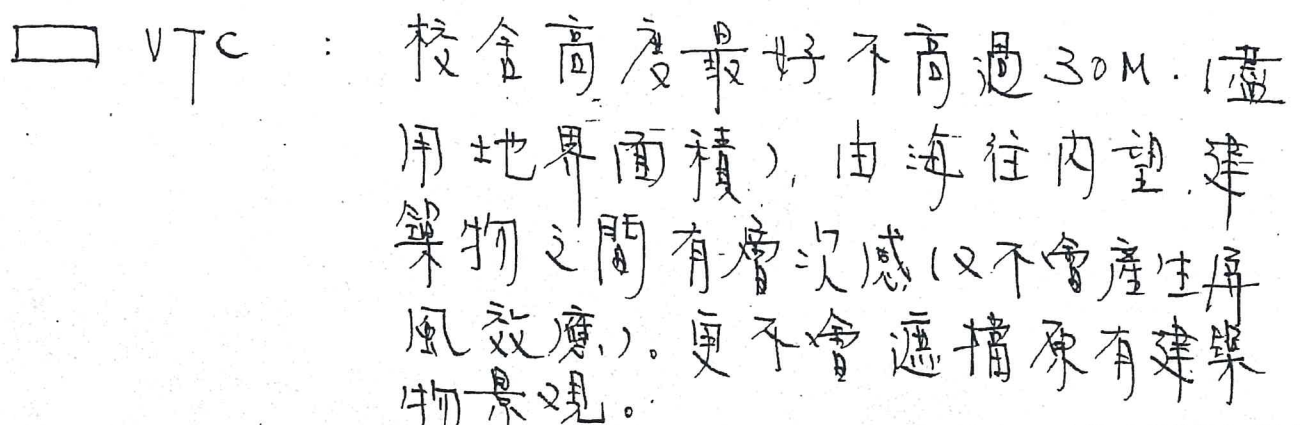 VTC : 校舍高度最好不高過30M.(盡
用地界面積), 由海往內望,建
築物之間有層次感(又不會產生屏
風效應)。更不會遮擋原有建築
物景观。